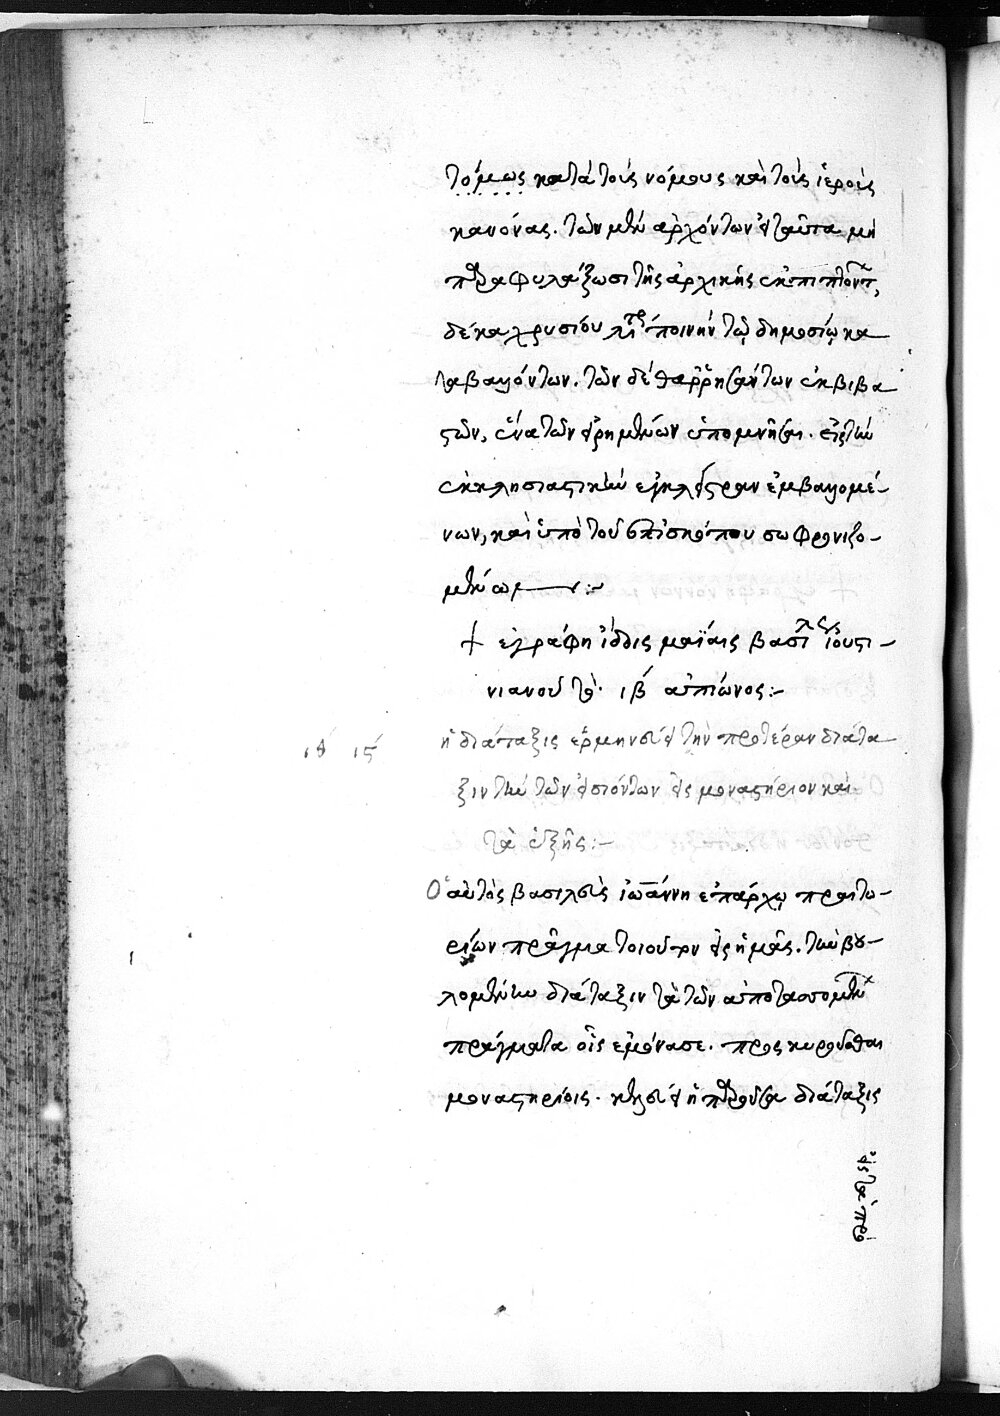 τόμως κατὰ τοὺς νόμους καὶ τοὺς ἱεροὺς
κανόνας. τῶν μὲν ἀρχόντων εἰ ταῦτα μὴ
παραφυλάξωσι τῆς ἀρχικῆς ἐκπιπτόντ
δέκα χρυσίου λιτρ ποινὴν τῷ δημοσίῳ κα
ταβαλλόντων. τῶν δὲ θαῤῥησάντων ἐκβιβα
στῶν, ἕνα τῶν εἰρημένων ὑπομνῆσαι. εἰς τὴν
ἐκκλησιαστικὴν ἐμβαλλομέ-
νων, καὶ ὑπὸ τοῦ ἐπισκόπου σωφρονιζο-
μένων :-
+ ἐγράφη ἰδοῖς μαΐαις βασιλείας ἰουστι-
νιανοῦ τὸ ιβ΄ αὐπίωνος:-
ιθ΄ ις΄ ἡ διάταξις ἑρμηνεύει τὴν προτέραν διάτα
ξιν τὴν τῶν εἰσιόντων εἰς μοναστήριον καὶ
τὰ ἑξῆς:-
Ὁ αὐτὸς βασιλεὺς ἰωάννῃ ἐπάρχῳ πραιτω-
ρίων πρᾶγμα τοιοῦτον εἰς ἡμᾶς. τὴν βου-
λομένην διάταξιν τὰ τῶν ἀποτασσομένων
πράγματα οἷς ἐμόνασε. προσκυροῦσθαι
μοναστηρίοις. κελεύει ἡ παροῦσα διάταξις
εἰς τὰ πρό